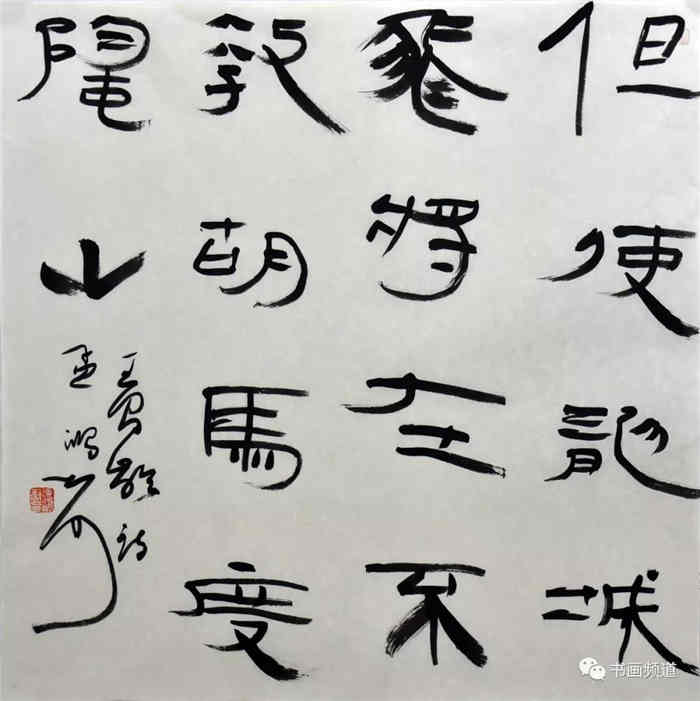 但使龍城
飛將在不
教胡馬度
陰山
王昌齡詩
孟鴻
书画频道